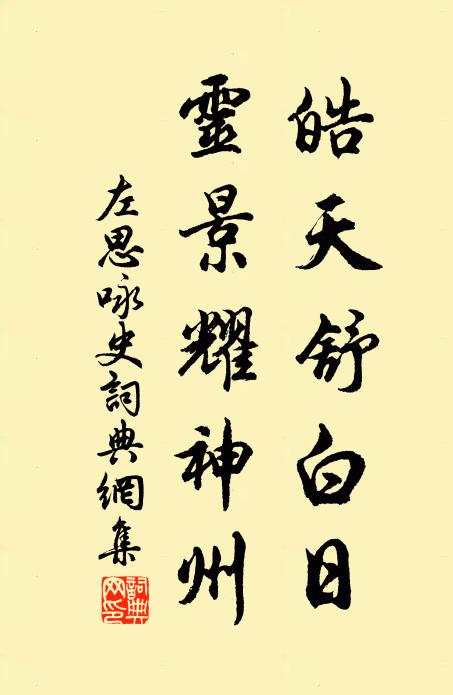 皓天舒白日
靈景耀神州
左思咏史詞典網集
詞典网印